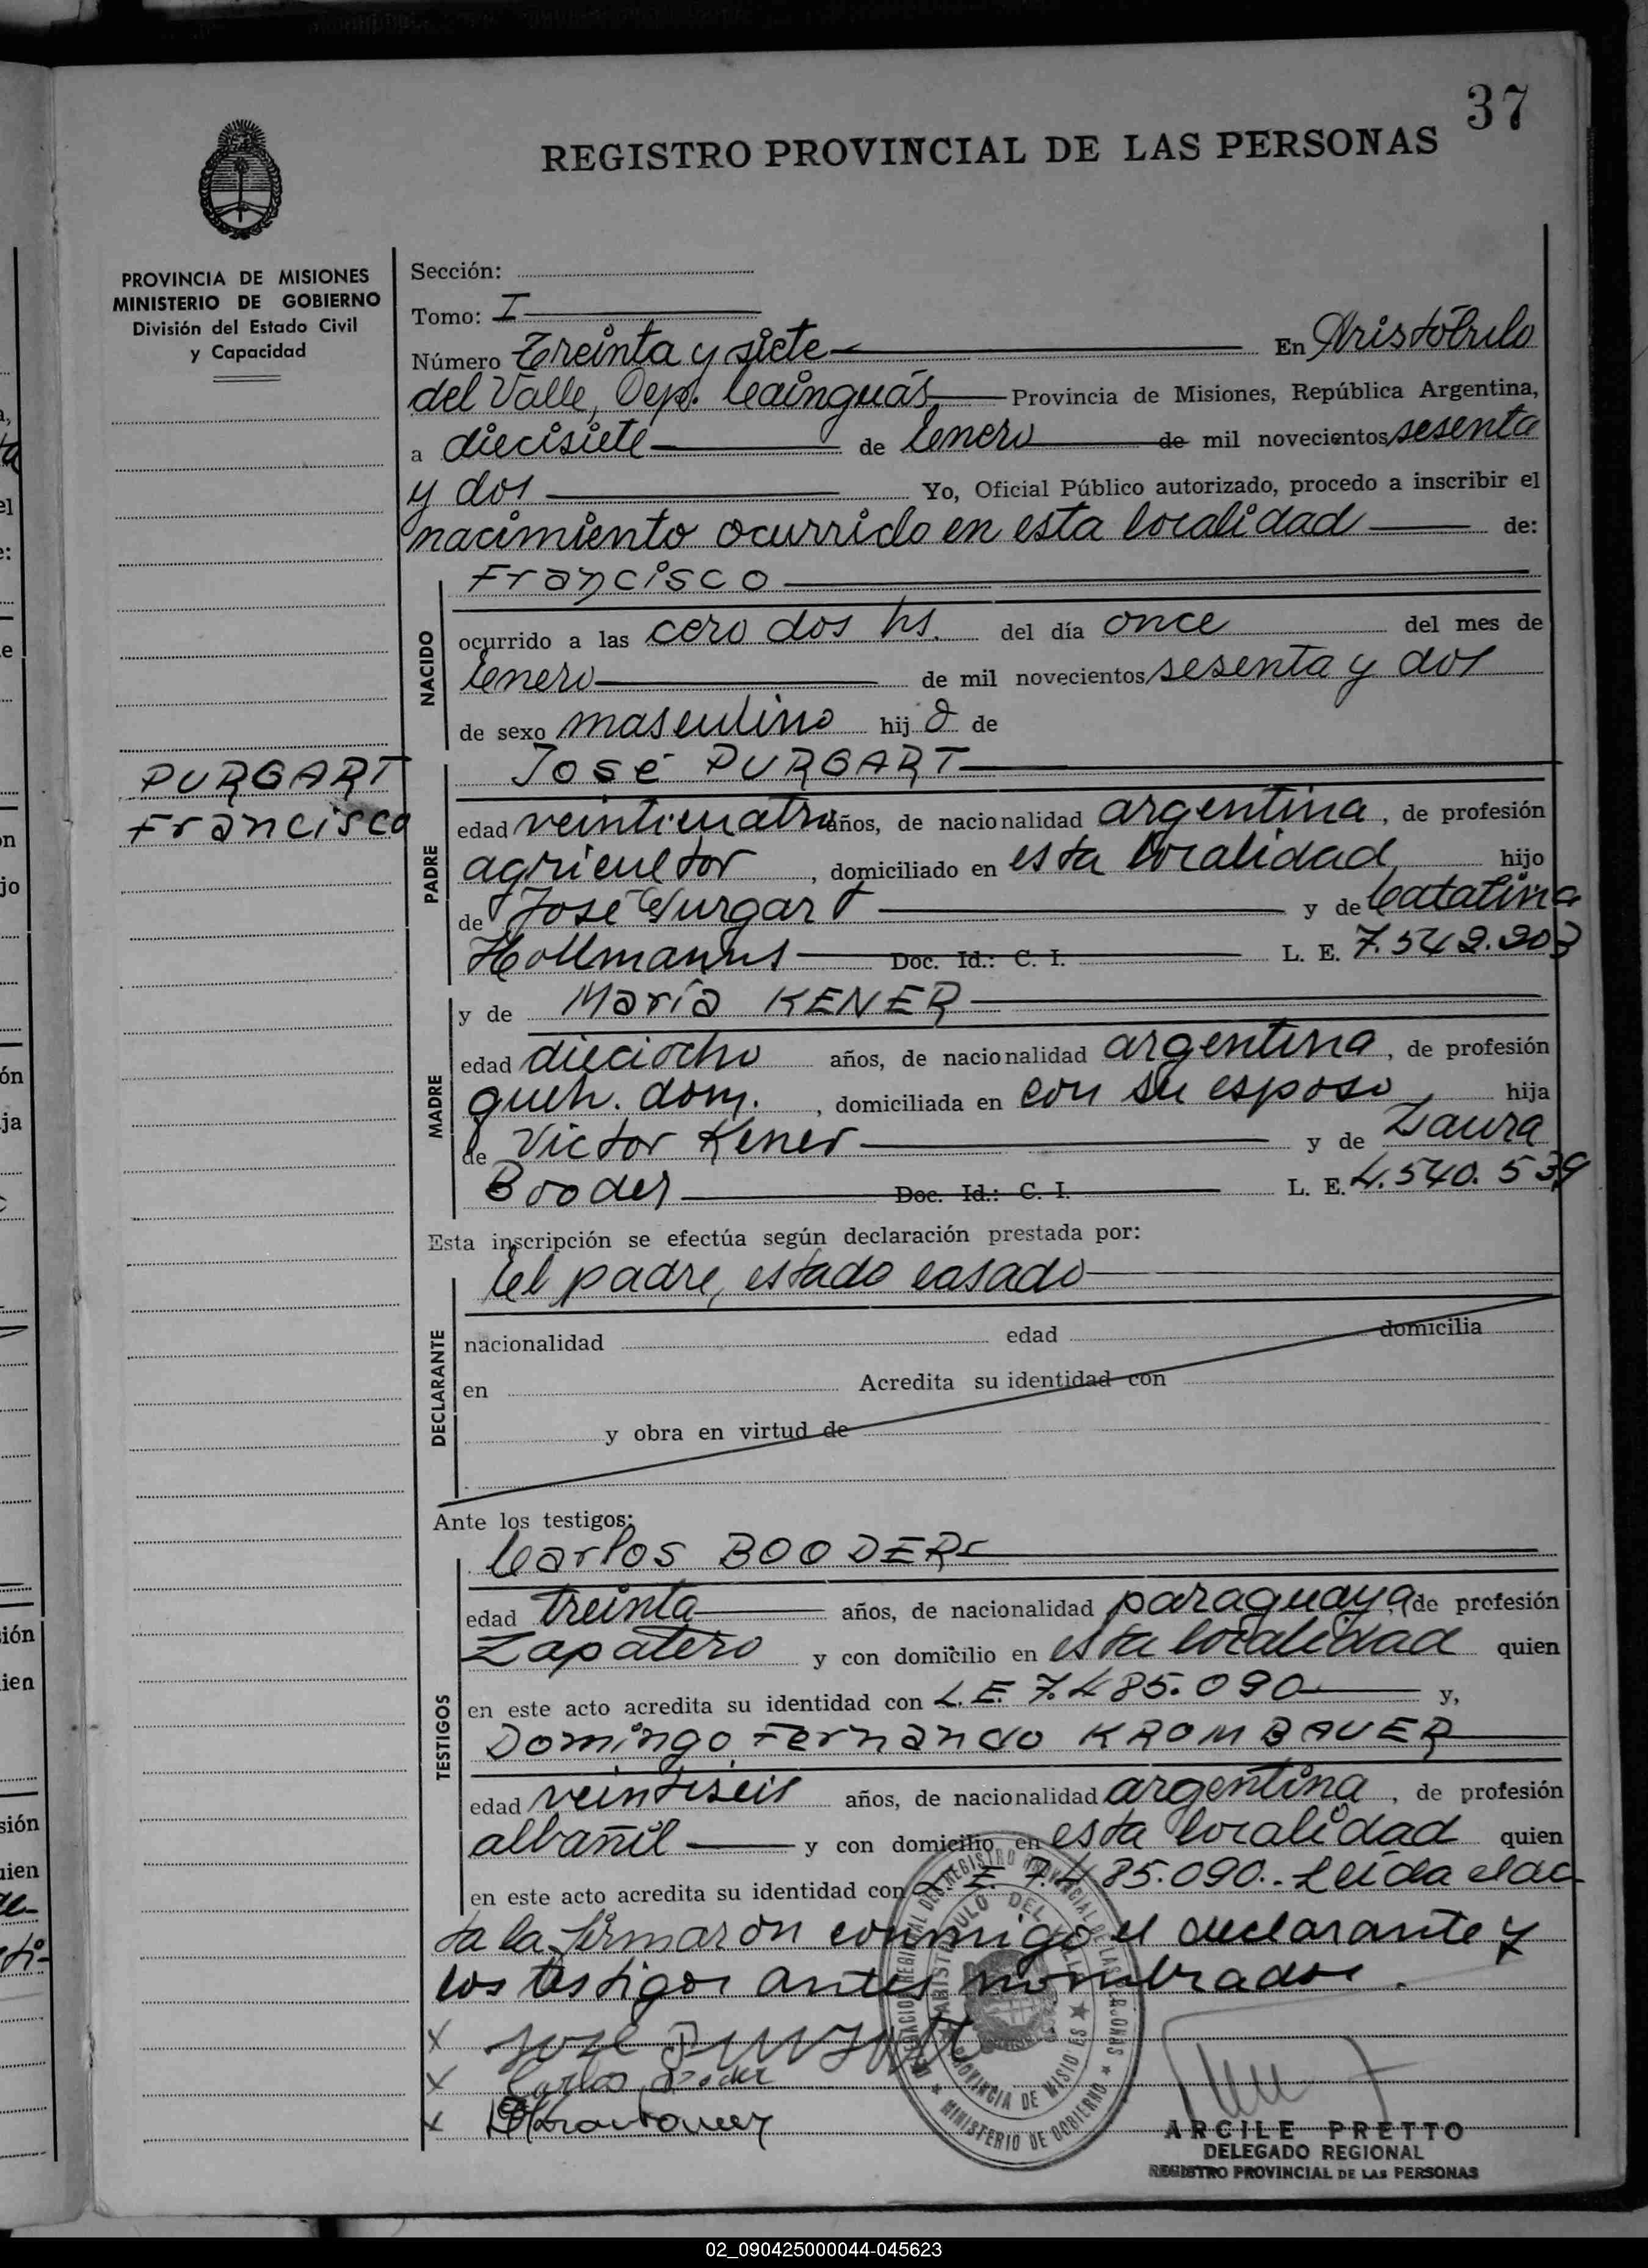 37
REGISTRO PROVINCIAL DE LAS PERSONAS
PROVINCIA DE MISIONES
MINISTERIO DE GOBIERNO
División del Estado Civil
y Capacidad
PURGART
Francisco
Sección:
Tomo: I
Número Treinta y siete En Aristóbulo
del Valle, Dep. Cainguás Provincia de Misiones, República Argentina,
a diecisiete de Enero de mil novecientos sesenta
y dos Yo, Oficial Público autorizado, procedo a inscribir el
nacimiento ocurrido en esta localidad de:
NACIDO
Francisco
ocurrido a las cero dos hs. del día once del mes de
Enero de mil novecientos sesenta y dos
de sexo masculino hij o de
PADRE
José PURGART
edad veinticuatro años, de nacionalidad argentina, de profesión
agricultor, domiciliado en esta localidad hijo
de José Purgart y de Catalina
Hollmanns Doc. Id.: C. I. L. E. 7.542.203
MADRE
y de María KENER
edad dieciocho años, de nacionalidad argentina, de profesión
queh. dom., domiciliada en con su esposo hija
de Victor Kener y de Laura
Booder Doc. Id.: C. I. L. E. 4.540.539
Esta inscripción se efectúa según declaración prestada por:
DECLARANTE
El padre, estado casado
nacionalidad edad domicilia
en Acredita su identidad con
y obra en virtud de
Ante los testigos:
TESTIGOS
Carlos BOODER
edad treinta años, de nacionalidad paraguaya, de profesión
Zapatero y con domicilio en esta localidad quien
en este acto acredita su identidad con L.E. 7.485.090 y,
Domingo Fernando KROMBAUER
edad veintiseis años, de nacionalidad argentina, de profesión
albañil y con domicilio en esta localidad quien
en este acto acredita su identidad con L.E. 7.485.090.- Leída el ac
ta la firmaron conmigo el declarante y
los testigos antes nombrados.
x José Purgart
x Carlos Booder
x
DEL REGISTRO PROVINCIAL DE LAS PERSONAS
MINISTERIO DE GOBIERNO
ARISTOBULO DEL VALLE
PROVINCIA DE MISIONES
ARCILE PRETTO
DELEGADO REGIONAL
REGISTRO PROVINCIAL DE LAS PERSONAS
02_090425000044-045623